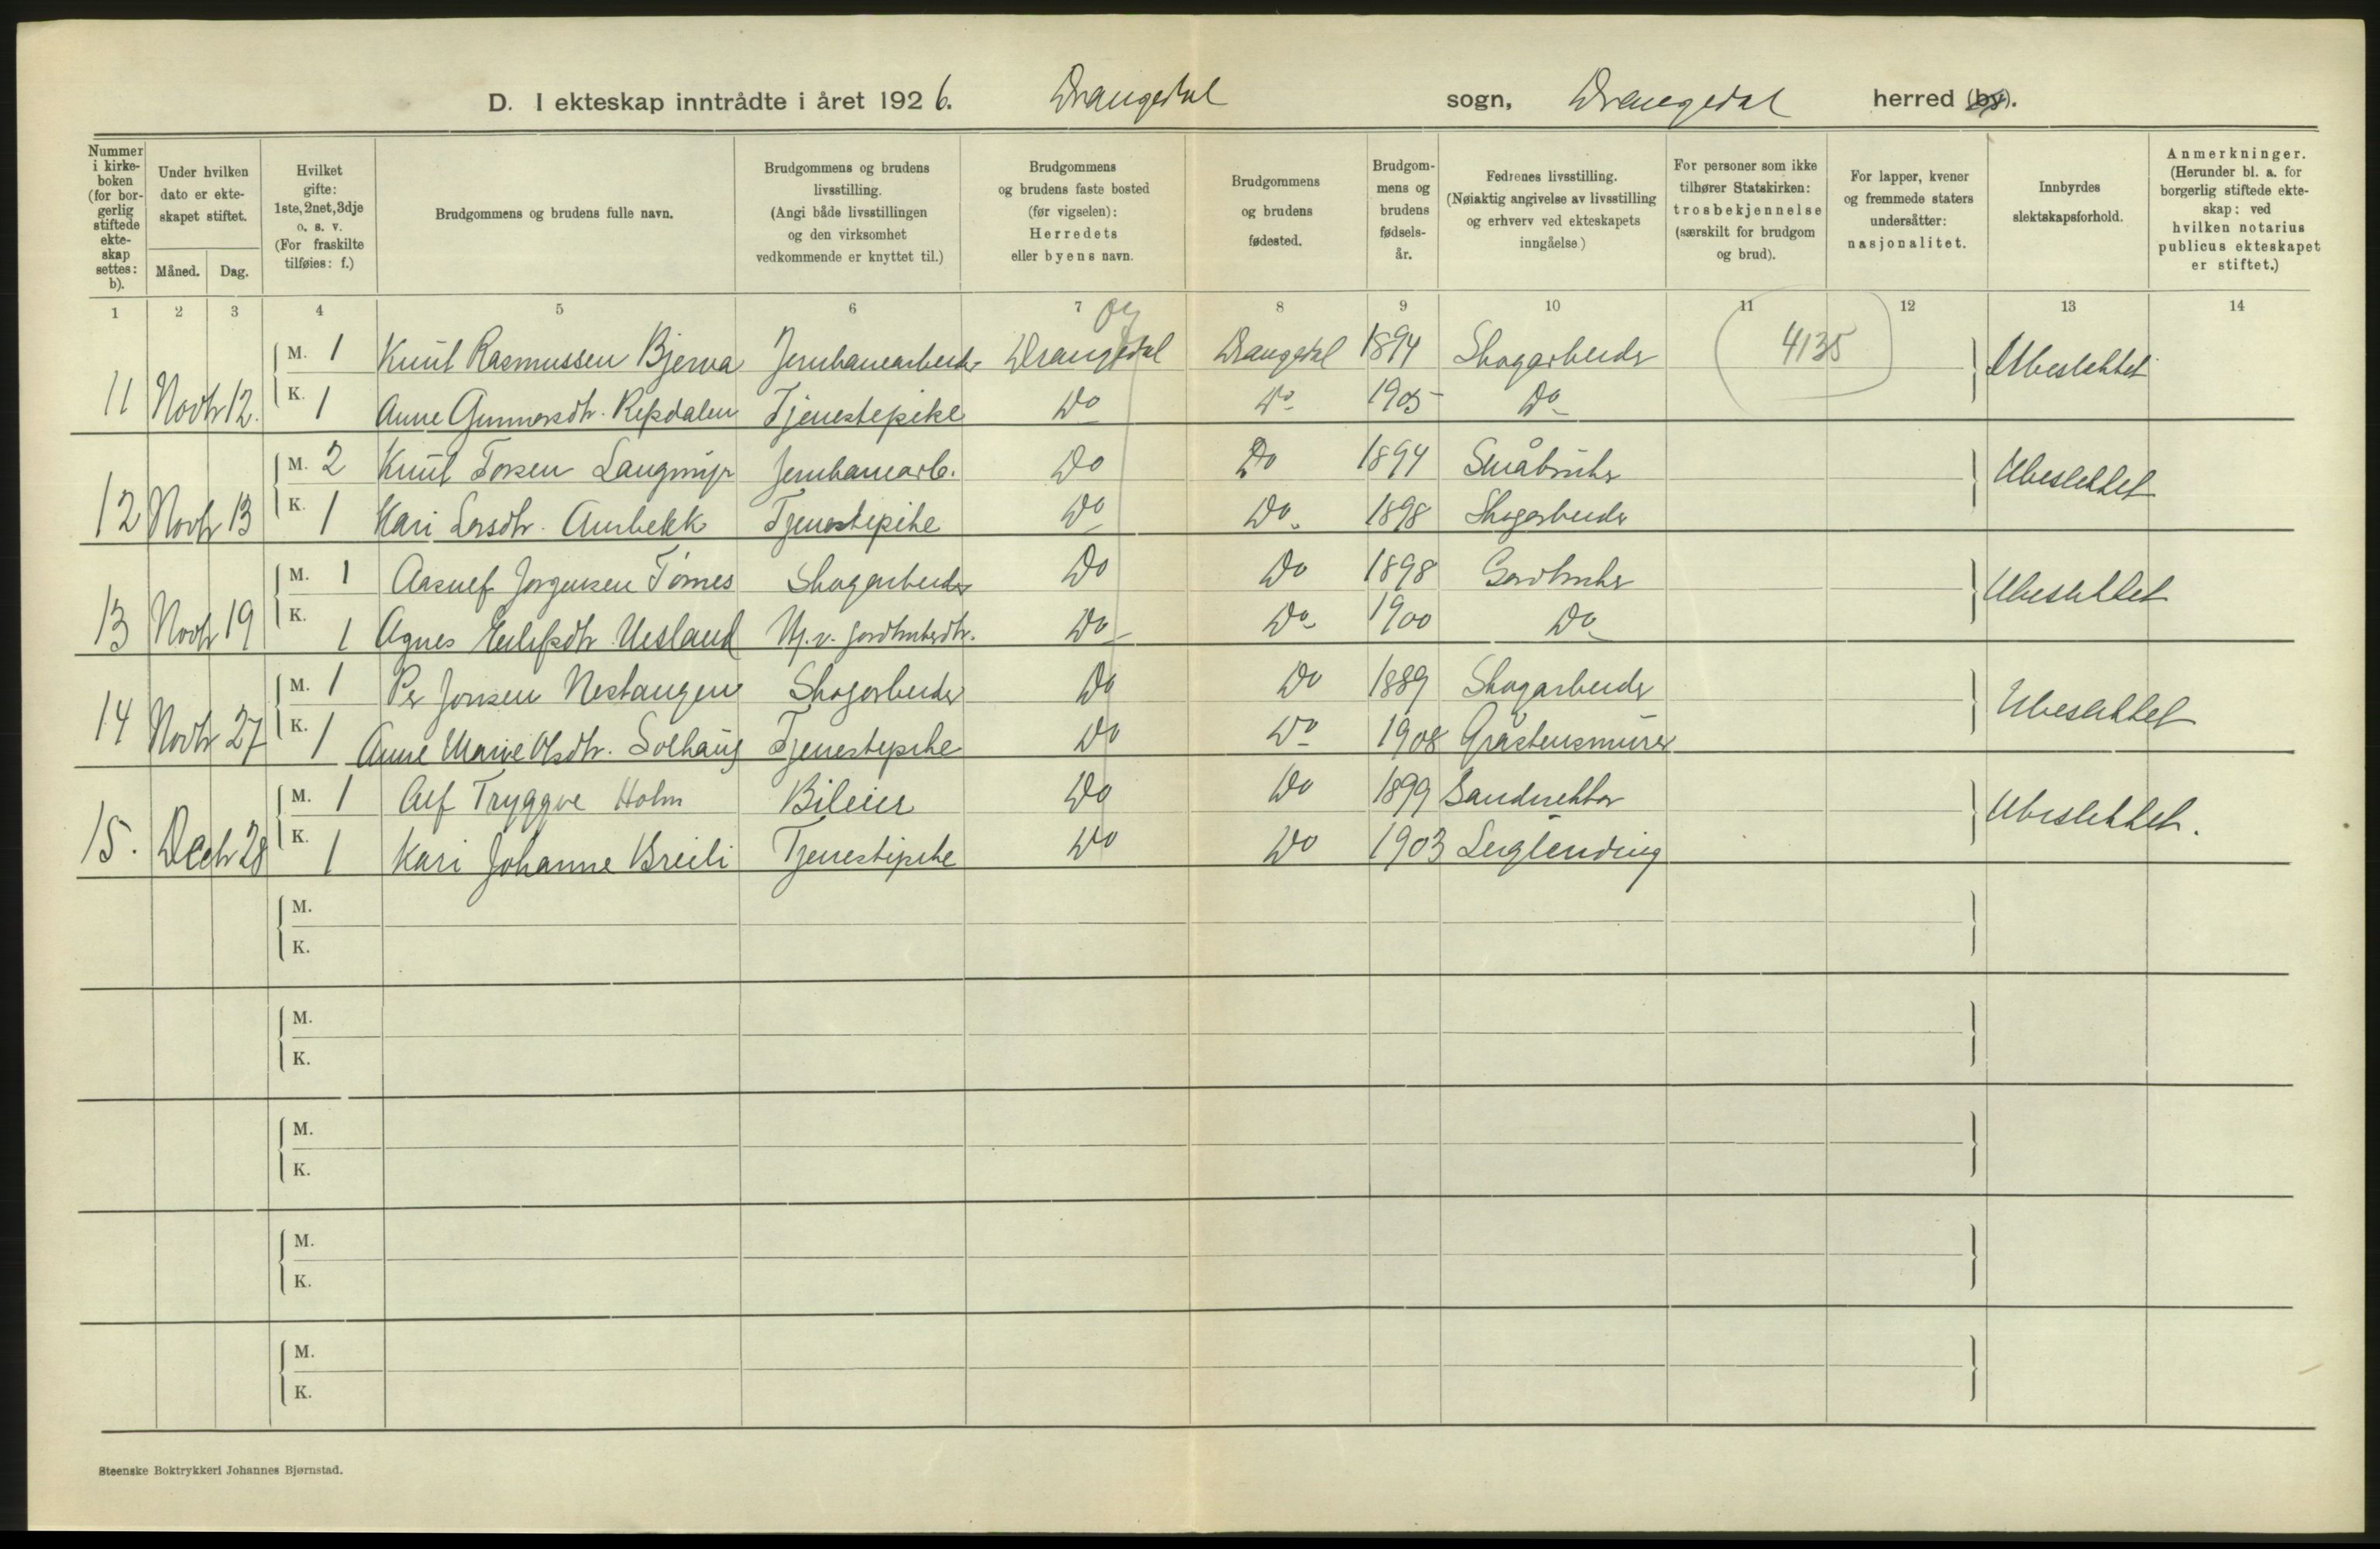 D. I ekteskap inntrådte i året 1926. Drangedal sogn, Drangedal herred (by).
Nummer i kirke-boken (for bor-gerlig stiftede ekte-skap settes: b).
Under hvilken dato er ekte-skapet stiftet.
Måned. Dag.
Hvilket gifte: 1ste, 2net, 3dje o. s. v. (For fraskilte tilføies: f.)
Brudgommens og brudens fulle navn.
Brudgommens og brudens livsstilling. (Angi både livsstillingen og den virksomhet vedkommende er knyttet til.)
Brudgommens og brudens faste bosted (før vigselen): Herredets eller byens navn.
Brudgommens og brudens fødested.
Brudgom-mens og brudens fødsels-år.
Fedrenes livsstilling. (Nøiaktig angivelse av livsstilling og erhverv ved ekteskapets inngåelse.)
For personer som ikke tilhører Statskirken: trosbekjennelse (særskilt for brudgom og brud).
For lapper, kvener og fremmede staters undersåtter: nasjonalitet.
Innbyrdes slektskapsforhold.
Anmerkninger. (Herunder bl. a. for borgerlig stiftede ekte-skap: ved hvilken notarius publicus ekteskapet er stiftet.)
1 2 3 4 5 6 7 8 9 10 11 12 13 14
M. 1 Knut Rasmussen Bjerva Jernbanearbeider Drangedal Drangedal 1894 Skogarbeider 4135 Ubeslektet
11 Novbr 12. K. 1 Anne Gunnarsdtr. Repsdalen Tjenestepike Do Do 1905 Do
M. 2 Knut Torsen Langmyr Jernbanearb. Do Do 1894 Småbruker Ubeslektet
12 Novbr 13 K. 1 Kari Larsdtr. Aurbekk Tjenestepike Do Do 1898 Skogarbeider
M. 1 Aasulf Jørgensen Tørnes Skogarbeider Do Do 1898 Gardbruker Ubeslektet
13 Novbr 19 K. 1 Agnes Eilefsdtr. Uesland Hj.v. gardbrukerdtr. Do Do 1900 Do
M. 1 Per Jonsen Nestangen Skogarbeider Do Do 1889 Skogarbeider Ubeslektet
14 Novbr 27 K. 1 Anne Marie Olsdtr. Solhaug Tjenestepike Do Do 1908 Gråstensmurer
M. 1 Alf Tryggve Holm Bileier Do Do 1899 Ubeslektet.
15. Decbr 28 K. 1 Kari Johanne Breili Tjenestepike Do Do 1903
M.
K.
M.
K.
M.
K.
M.
K.
M.
K.
Steenske Boktrykkeri Johannes Bjørnstad.